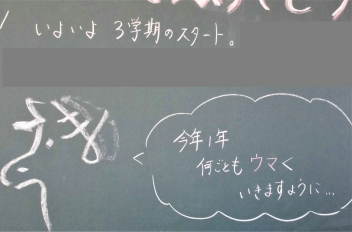 いよいよ 3学期のスタート。
今年1年
何ごともウマく
いきますように…